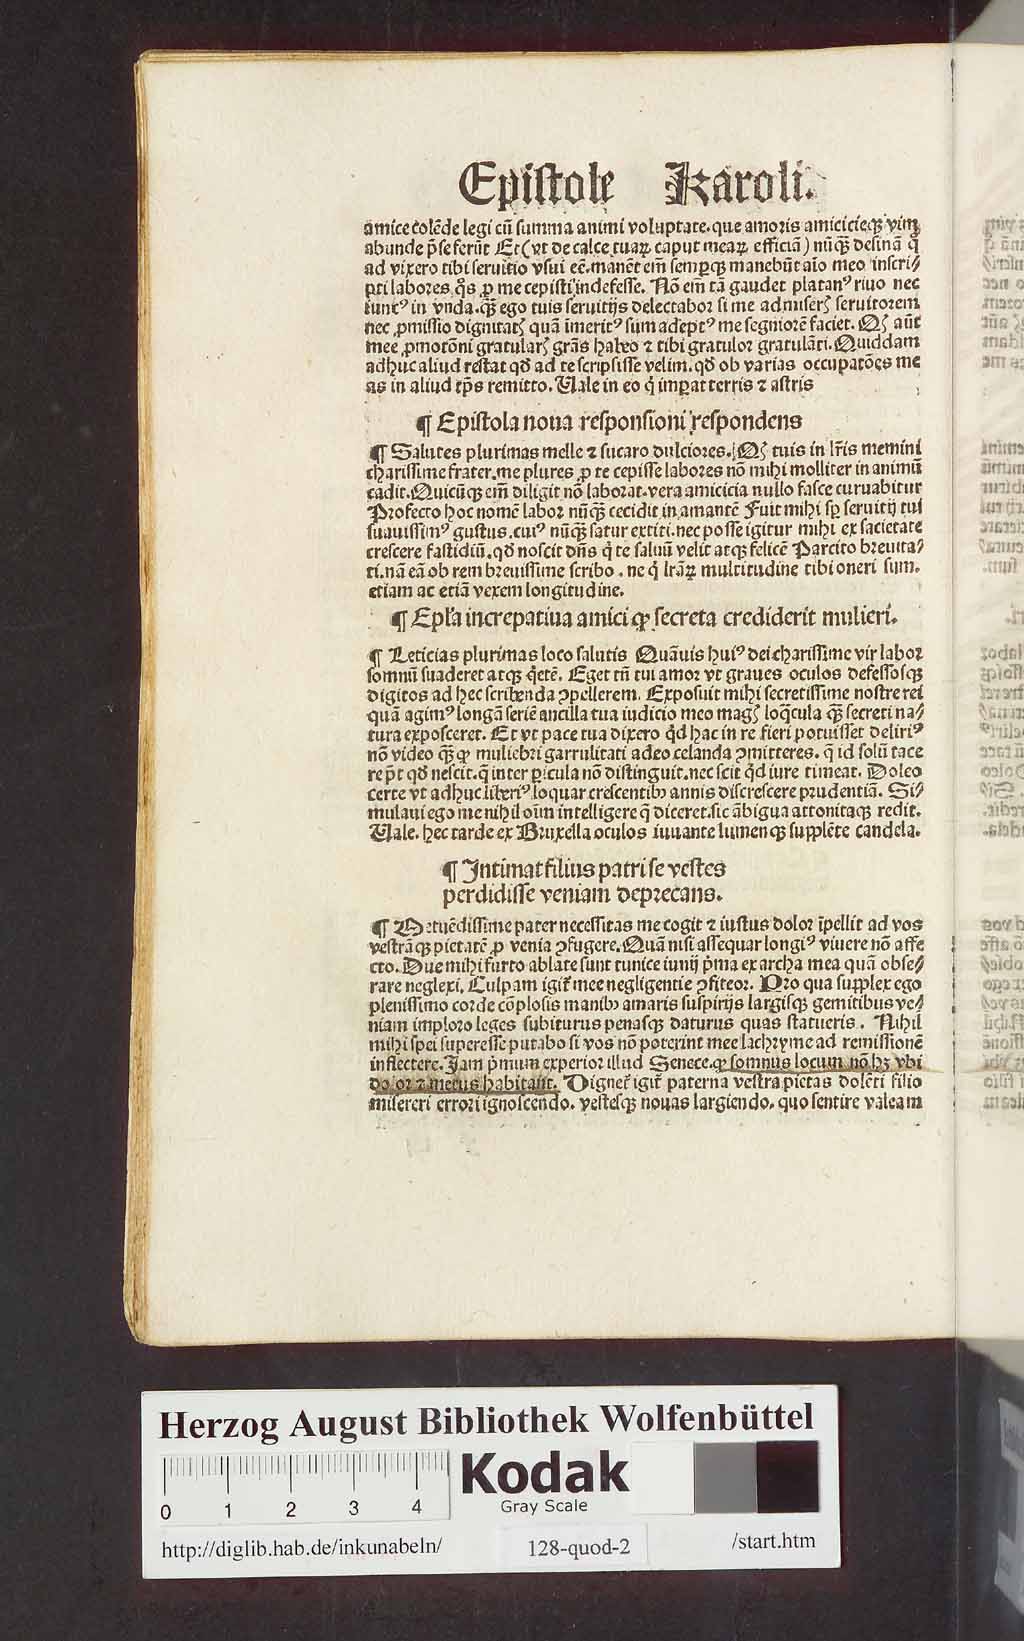 Epistole Karoli.
amice colēde legi cū summa animi voluptate. que amoris amicicieqꝫ vim
abunde p̄seferūt Et (vt de calce tuaꝝ caput meaꝝ efficiā) nūqꝫ desinā q̄
ad vixero tibi seruitio vsui eē. manēt em̄ semꝑqꝫ manebūt aīo meo inscri⸗
pti labores q̄s ꝓ me cepisti indefesse. Nō em̄ tā gaudet platanꝰ riuo nec
in vnda. qꝫ̄ ego tuis seruitijs delectabor si me admiserꝭ seruitorem
nec ꝓmissio dignitatꝭ quā īmeritꝰ sum adeptꝰ me segniorē faciet. Qꝭ aūt
mee ꝓmotōni gratularꝭ grās habeo ⁊ tibi gratulor gratulāti. Quiddam
adhuc aliud restat qd̄ ad te scripsisse velim. qd̄ ob varias occupatōes me
as in aliud tp̄s remitto. Uale in eo q̇ imꝑat terris ⁊ astris
¶ Epistola noua responsioni respondens
¶ Salutes plurimas melle ⁊ sucaro dulciores. Qꝭ tuis in lr̄is memini
charissime frater. me plures ꝓ te cepisse labores nō mihi molliter in animū
cadit. Quicūqꝫ em̄ diligit nō laborat. vera amicicia nullo fasce curuabitur
Profecto hoc nomē labor nūqꝫ cecidit in amantē Fuit mihi sp̄ seruitij tui
suauissimꝰ gustus. cuiꝰ nūqꝫ satur extiti. nec posse igitur mihi ex sacietate
crescere fastidiū. qd̄ noscit dn̄s q̇ te saluū velit atqꝫ felicē Parcito breuita⸗
ti. nā eā ob rem breuissime scribo. ne q̇ lr̄aꝝ multitudine tibi oneri sum.
etiam ac etiā vexem longitudine.
¶ Epl̄a increpatiua amici ꝙ secreta crediderit mulieri.
¶ Leticias plurimas loco salutis Quāuis huiꝰ dei charissime vir labor
somnū suaderet atqꝫ q̇etē. Eget tn̄ tui amor vt graues oculos defessosqꝫ
digitos ad hec scribenda ꝯpellerem. Exposuit mihi secretissime nostre rei
quā agimꝰ longā seriē ancilla tua iudicio meo magꝭ loq̄cula qꝫ̄ secreti na⸗
tura exposceret. Et vt pace tua dixero q̇d hac in re fieri potuisset deliriꝰ
nō video qꝫ̄ ꝙ muliebri garrulitati adeo celanda ꝯmitteres. q̄ id solū tace
re pōt qd̄ nescit. q̄ inter ꝑicula nō distinguit. nec scit q̇d iure timeat. Doleo
certe vt adhuc liberiꝰ loquar crescentibꝫ annis discrescere prudentiā. Si⸗
mulaui ego me nihil oīm intelligere q̄ diceret. sic ābigua attonitaqꝫ redit.
Uale. hec tarde ex Bruxella oculos iuuante lumenqꝫ supplēte candela.
¶ Intimat filius patri se vestes
perdidisse veniam deprecans.
¶ Ortuēdissime pater necessitas me cogit ⁊ iustus dolor īpellit ad vos
vestrāqꝫ pietatē ꝓ venia ꝯfugere. Quā nisi assequar longiꝰ viuere nō affe
cto. Due mihi furto ablate sunt tunice iunij p̄ma ex archa mea quā obse⸗
rare neglexi. Culpam igit᷑ mee negligentie ꝯfiteor. Pro qua supplex ego
plenissimo corde cōplosis manibꝫ amaris suspirijs largisqꝫ gemitibus ve⸗
niam imploro leges subiturus penasqꝫ daturus quas statueris. Nihil
mihi spei superesse putabo si vos nō poterint mee lachryme ad remissionē
inflectere. Jam p̄mum experior illud Senece. ꝙ somnus locum nō hꝫ vbi
dolor ⁊ metus habitant. Dignet᷑ igit᷑ paterna vestra pietas dolēti filio
misereri errori ignoscendo. vestesqꝫ nouas largiendo. quo sentire valeam
Herzog August Bibliothek Wolfenbüttel
Kodak
Gray Scale
0 1 2 3 4
http://diglib.hab.de/inkunabeln/ 128-quod-2 /start.htm